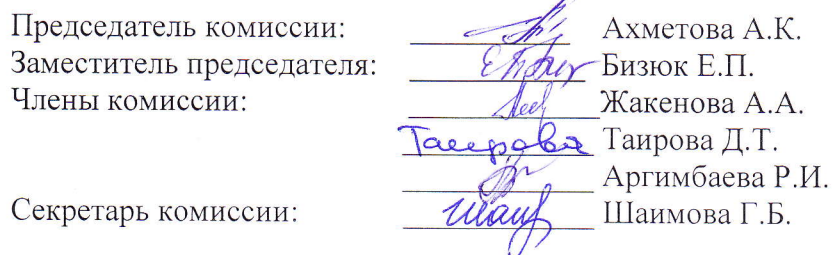 Председатель комиссии: Ахметова А.К.
Заместитель председателя: Бизюк Е.П.
Члены комиссии: Жакенова А.А.
Таирова Таирова Д.Т.
Аргимбаева Р.И.
Секретарь комиссии: Шаимова Г.Б.